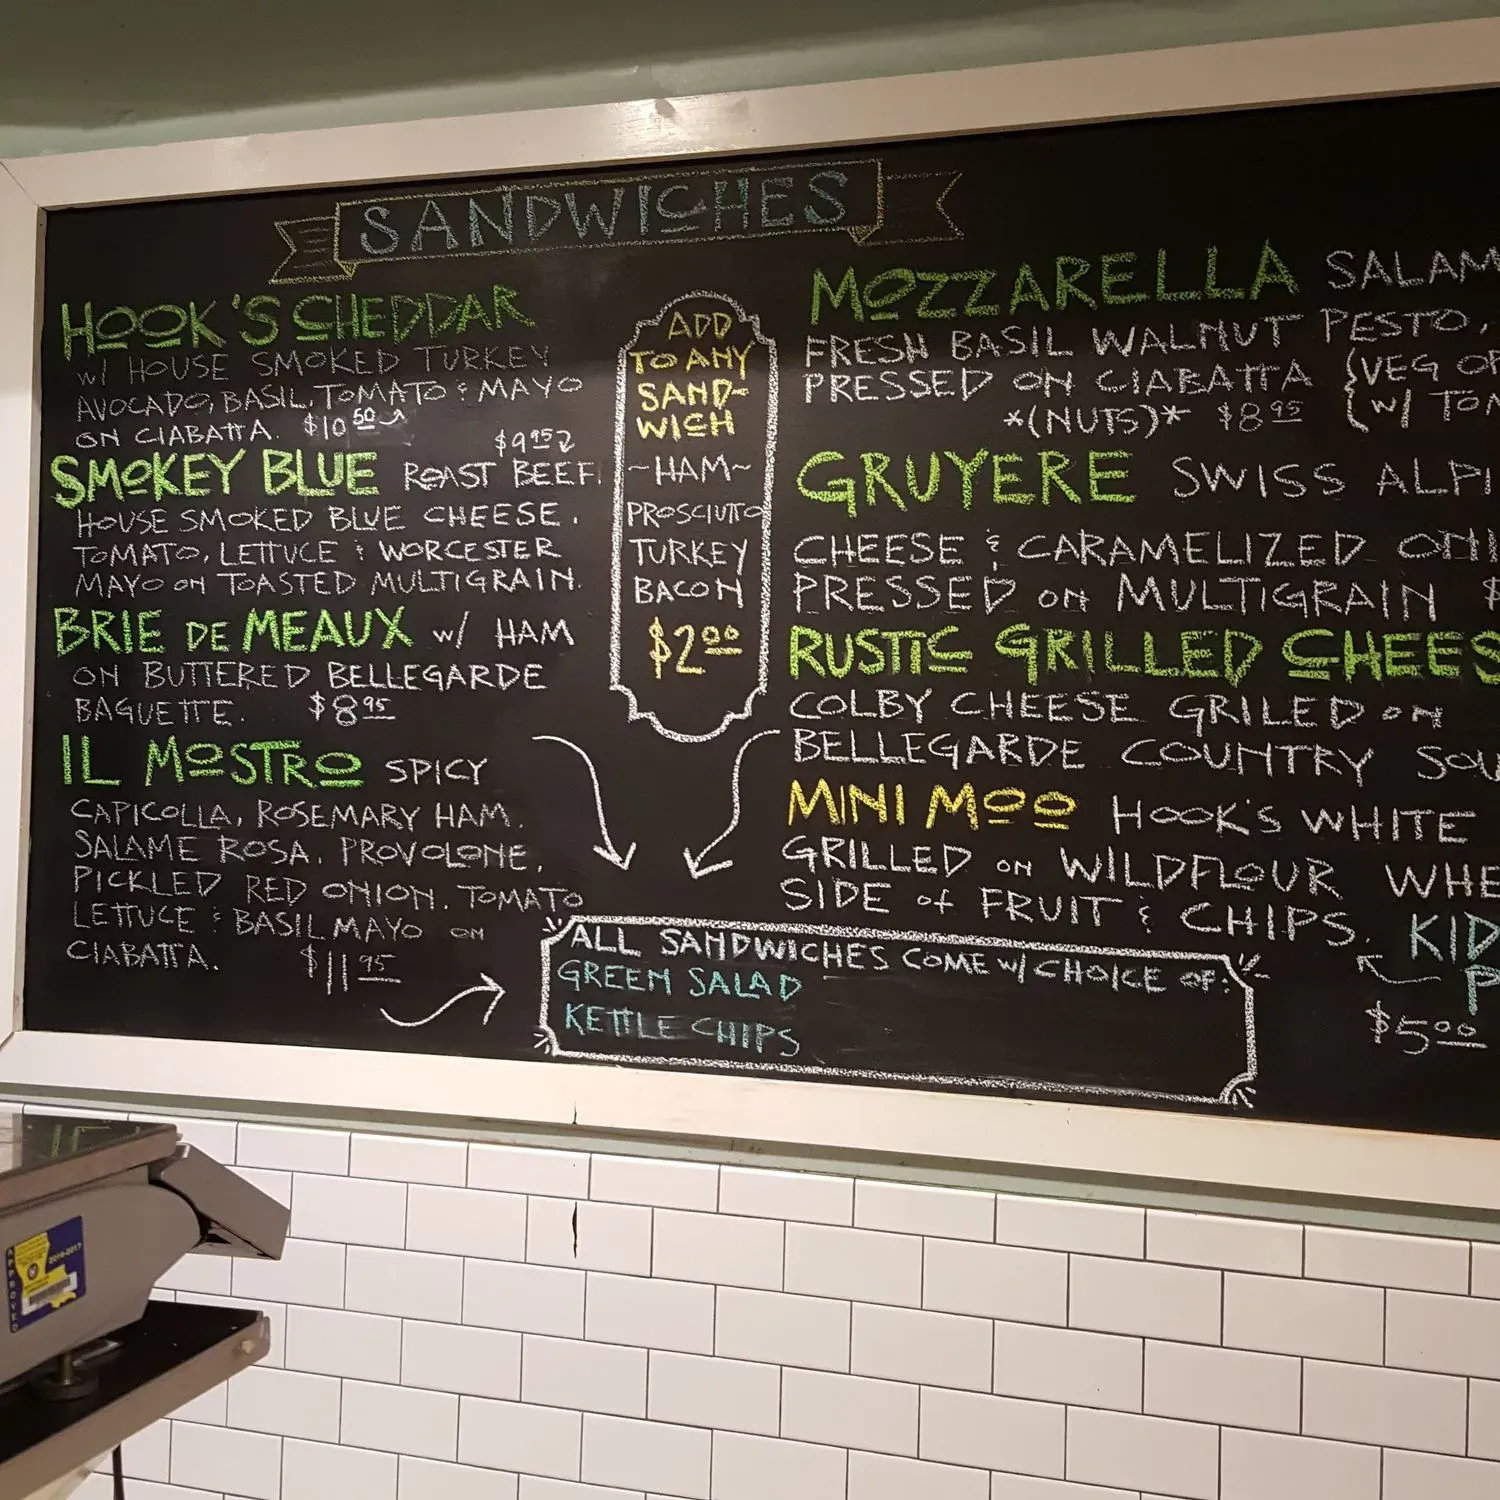 SANDWICHES
HOOK'S CHEDDAR
W/ HOUSE SMOKED TURKEY
AVOCADO, BASIL, TOMATO & MAYO
ON CIABATTA. $10 50
$9 95
SMOKEY BLUE ROAST BEEF.
HOUSE SMOKED BLUE CHEESE.
TOMATO, LETTUCE & WORCESTER
MAYO ON TOASTED MULTIGRAIN.
BRIE DE MEAUX W/ HAM
ON BUTTERED BELLEGARDE
BAGUETTE. $8 95
IL MOSTRO SPICY
CAPICOLLA, ROSEMARY HAM.
SALAME ROSA. PROVOLONE.
PICKLED RED ONION. TOMATO
LETTUCE & BASIL MAYO ON
CIABATTA. $11 95
ADD
TO ANY
SAND-
WICH
~HAM~
PROSCIUTTO
TURKEY
BACON
$2 00
MOZZARELLA SALAM
FRESH BASIL WALNUT PESTO,
PRESSED ON CIABATTA {VEG OP
*(NUTS)* $8 95 W/ TOM
GRUYERE SWISS ALPI
CHEESE & CARAMELIZED ONI
PRESSED ON MULTIGRAIN $
RUSTIC GRILLED CHEES
COLBY CHEESE GRILED ON
BELLEGARDE COUNTRY SOU
MINI MOO HOOK'S WHITE
GRILLED ON WILDFLOUR WHE
SIDE OF FRUIT & CHIPS. KID
P
$5 00
ALL SANDWICHES COME W/ CHOICE OF:
GREEN SALAD
KETTLE CHIPS
APPROVED
2016-2017